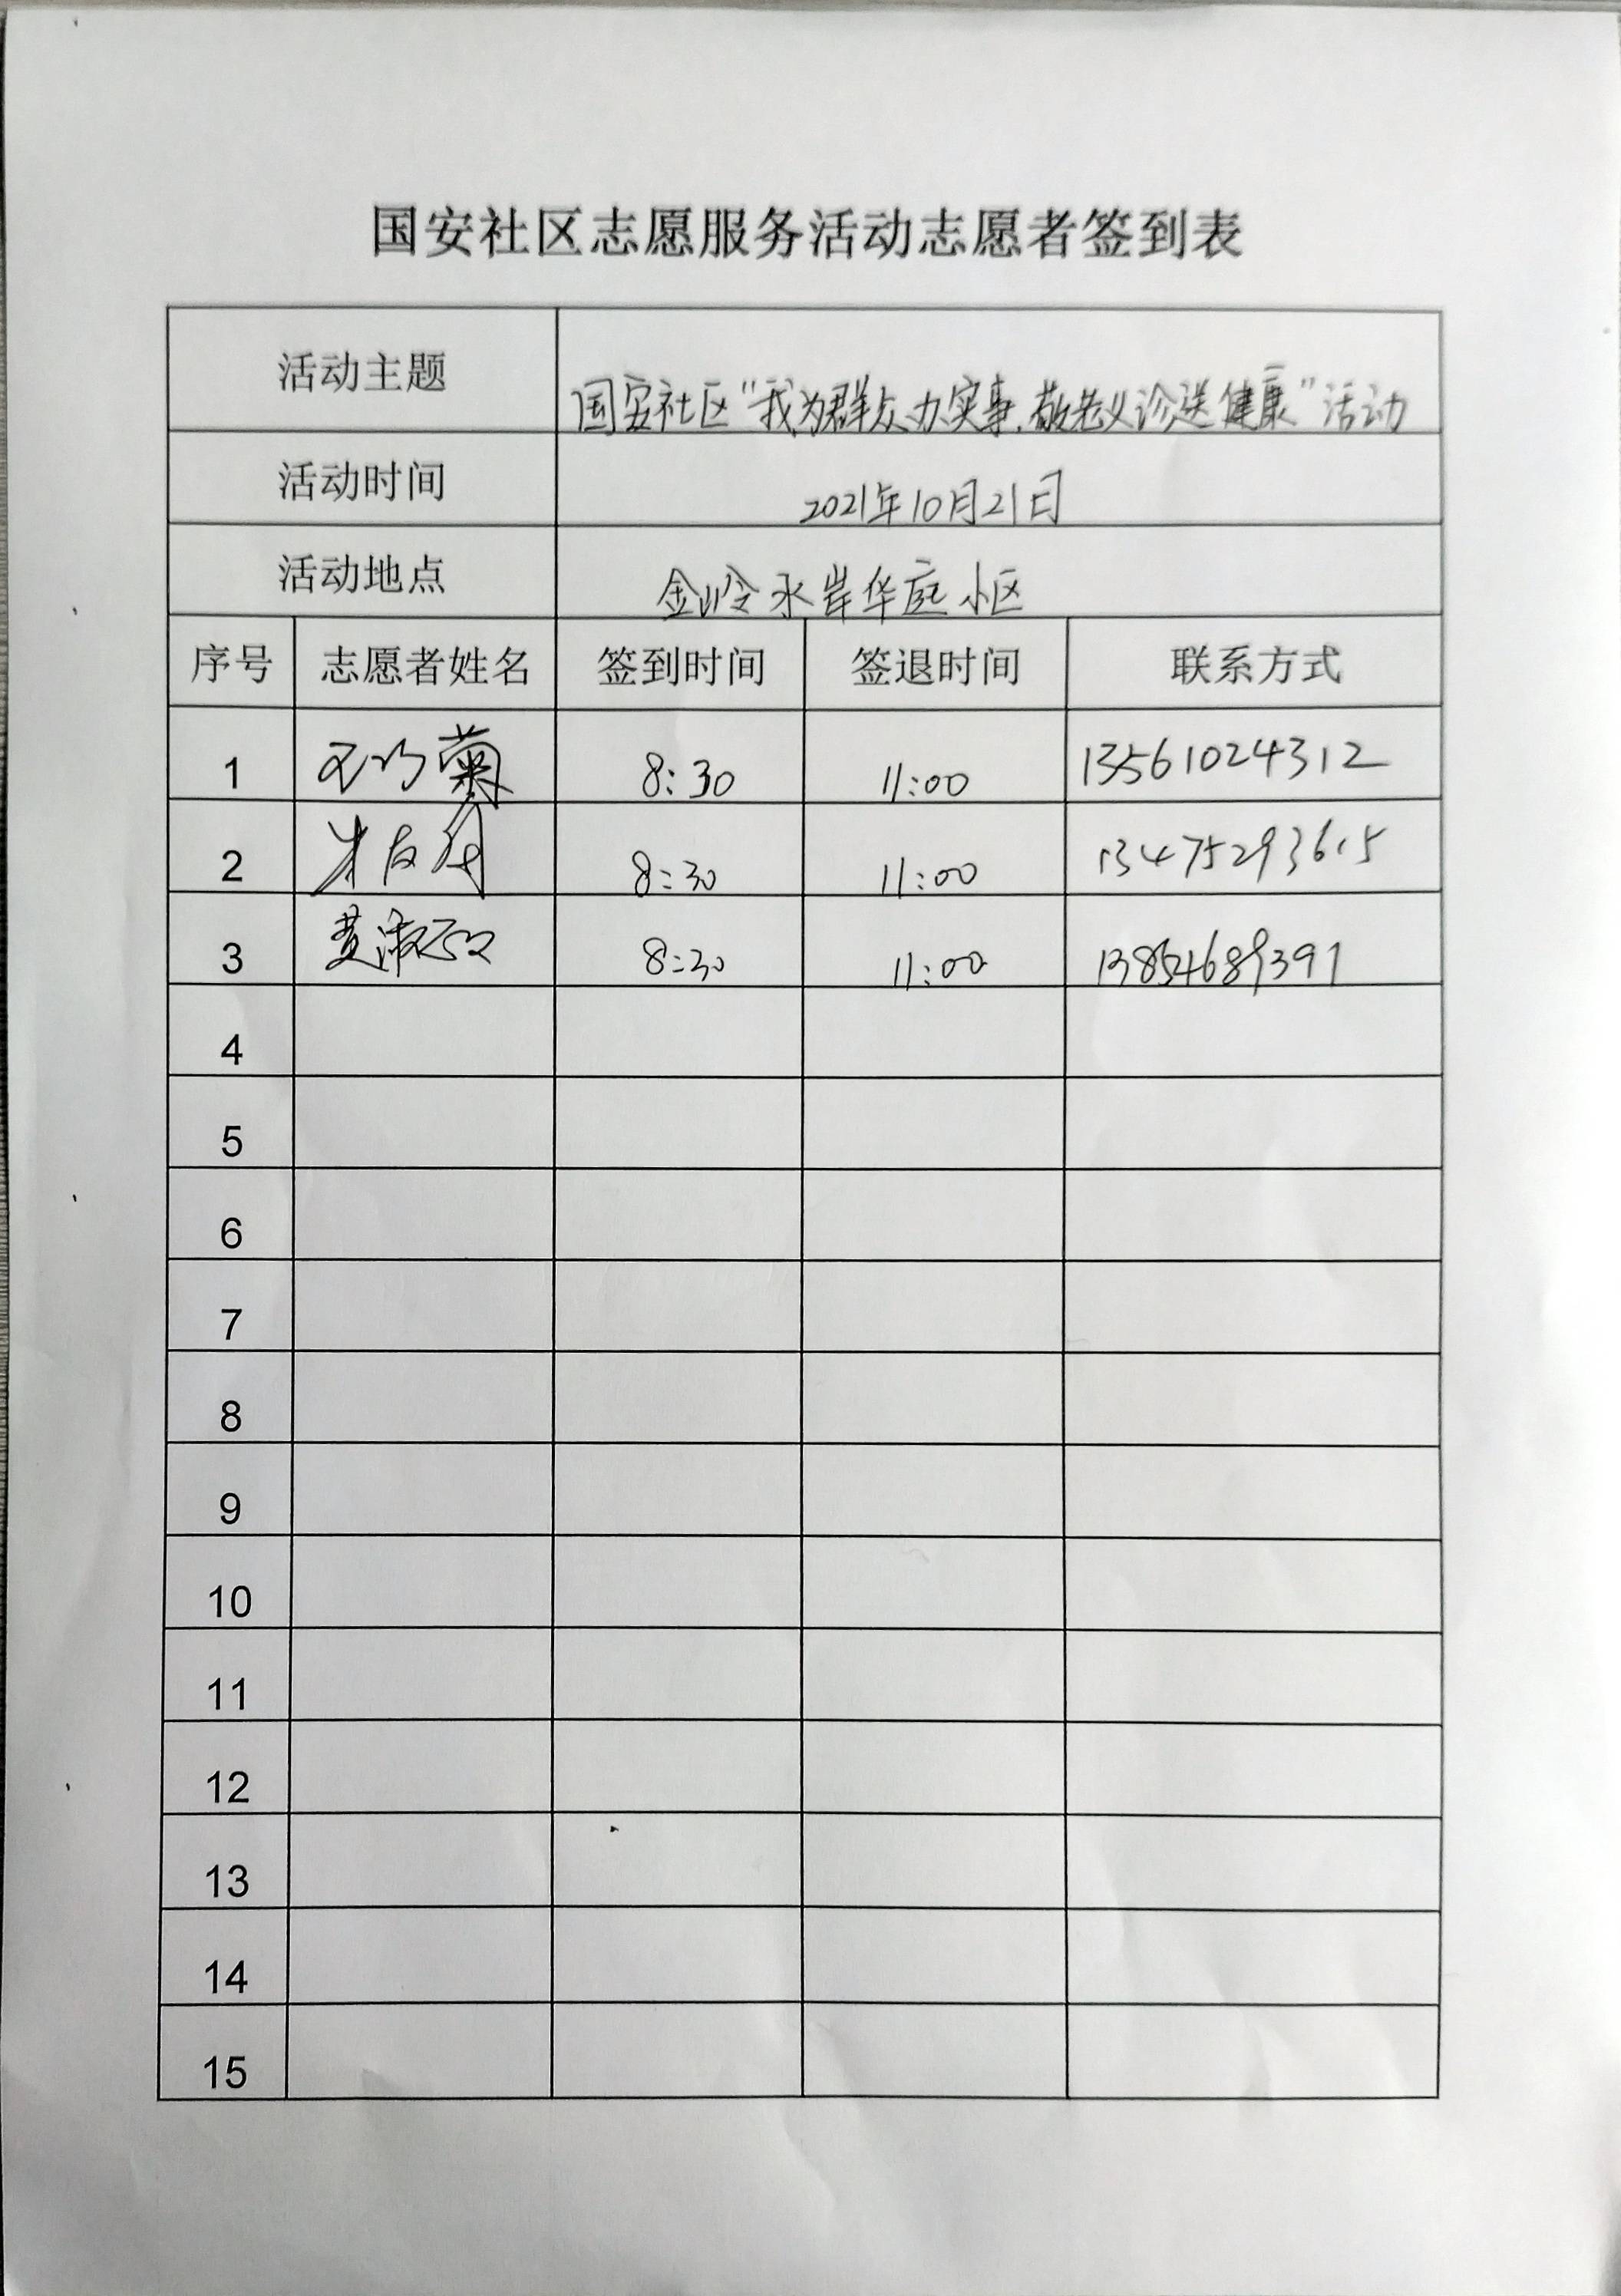 国安社区志愿服务活动志愿者签到表
活动主题 国安社区“我为群众办实事,敬老义诊送健康”活动
活动时间 2021年10月21日
活动地点 金岭水岸华庭小区
序号 志愿者姓名 签到时间 签退时间 联系方式
1 8:30 11:00 13561024312
2 8:30 11:00 13475293615
3 8:30 11:00 13854689391
4
5
6
7
8
9
10
11
12
13
14
15